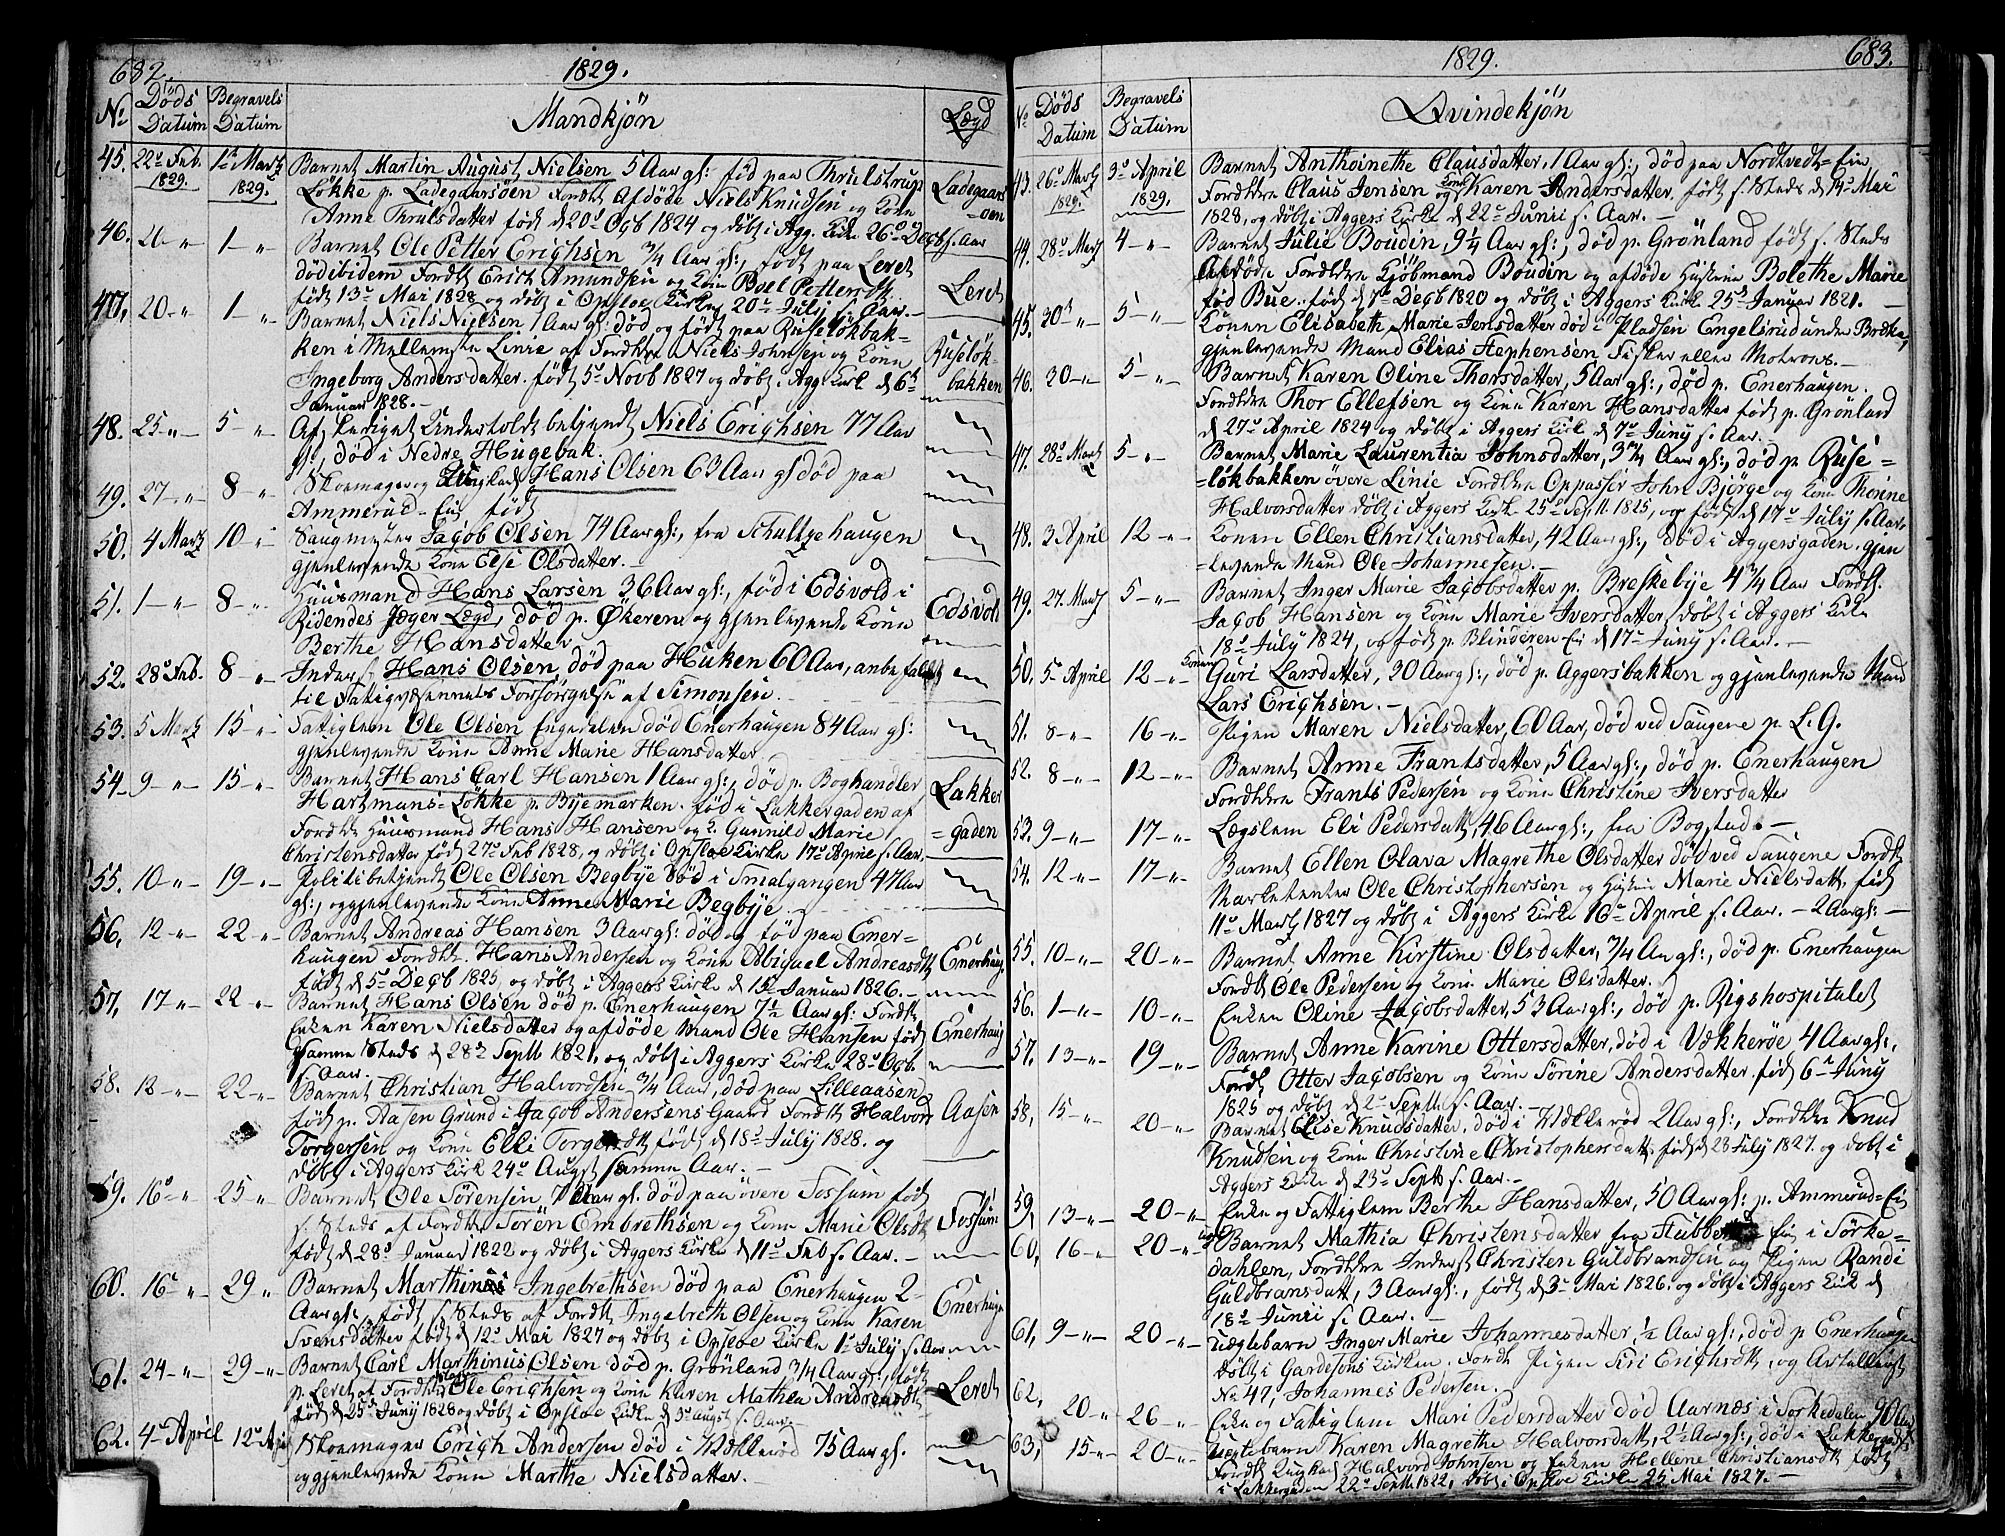 682. 1829.
No Döds Datum Begravels Datum Mandkjön Lægd
45. 22d Feb. 1829. 1st Martz 1829. Barnet Martin August Nielsen 5 Aar gl: fød paa Thrulstrup
Løkke p. Ladegaarsøen Fordt Afdöde Niels Knudsen og Kone Ladegaars=
Anne Thrulsdatter født d 20d Ogb 1824 og døbt i Agg. Kirke 26d Decb s. Aar =øen
46. 20 -"- 1 -"- Barnet Ole Petter Erichsen 3/4 Aar gl:, født paa Leret
död ibidem Fordt Erich Amundsen og Kone Boel Pettersdtt Leret
født 13d Mai 1828 og døbt i Opsloe Kirke 20d July s. Aar. -
47. 20 -"- 1 -"- Barnet Niels Nielsen 1 Aar gl: død og født paa Ruseløkbak=
ken i Mellemste Linie af Fordldre Niels Johnsen og Kone Ruseløk=
Ingeborg Andersdatter. født 5d Novb 1827 og døbt. Agg. Kirk d 6te bakken
Januar 1828. -
48. 25 -"- 5 -"- Afskediget Undertoldbetjendt Niels Erichsen 77 Aar
gl:, død i Nedre Hugebak.
49. 27 -"- 8 -"- Skoemager og Hans Olsen 63 Aar gl død paa
Ammerud-Eie født
50. 4 Martz 10 -"- Saugmester Jacob Olsen 74 Aar gl:, fra Schultzehaugen
gjenlevende Kone Else Olsdatter. -
51. 1 -"- 8 -"- Huusmand Hans Larsen 36 Aar gl:, fød i Edsvold i
Ridendes Jæger Lægd, død p. Økeren og gjenlevende Kone Edsvold
Berthe Hansdatter
52. 28d Feb. 8 -"- Inderst Hans Olsen, død paa Huken 60 Aar, anbefalet
til Fatigvæsennets Forsørgelse af Simonsen.
53. 5 Martz 15 -"- Fatiglem Ole Olsen Engedalen død Enerhaugen 84 Aar gl:
gjenlevende Kone Anne Marie Hansdatter
54 - 9 -"- 15 -"- Barnet Hans Carl Hansen 1 Aar gl:, død p. Boghandler
Hartmans=Løkke p. Byemarken. fød i Lakkergaden af Lakker
Fordldre Huusmand Hans Hansen og K. Gunnild Marie =gaden
Christensdatter født 27d Feb 1828, og døbt i Opsloe Kirke 17d Aprile s. Aar.
55. 10 -"- 19 -"- Politibetjendt Ole Olsen Begbye død i Smalgangen 47 Aar
gl:, og gjenlevende Kone Anne Marie Begbye
56. 12 -"- 22 -"- Barnet Andreas Hansen 3 Aar gl: død og fød paa Ener=
haugen Fordldr. Hans Andersen og Kone Abigael Andreasdtt Enerhaug
født d 5d Decb 1825, og døbt i Aggers Kirke d 1st Januar 1826. -
57, 17 -"- 22 -"- Barnet Hans Olsen død p. Enerhaugen 7 1/2 Aar gl: Fordt
Enken Karen Nielsdatter og afdöde Mand Ole Hansen født Enerhaug
samme Steds d 28d Septb 1821, og døbt i Aggers Kirke 28d Ogb.
s. Aar.
58. 12 -"- 22 -"- Barnet Christian Halvordsen 3/4 Aar, død paa Lilleaasen
født p. Aasen Grund i Jacob Andersens Gaard Fordldr Halvor Aasen
Torgersen og Kone Elli Torgersdtt født d 18d July 1828. og
døbt i Aggers Kirk 24d Augst samme Aar. -
59. 16d -"- 25 -"- Barnet Ole Sørensen, 7 Aar gl. død paa övere Fossum født
s. Steds af Fordldre Sørèn Embrethsen og Kone Marie Olsdtt Fossum
født d 28d Januar 1822 og døbt i Aggers Kirke d 11d Feb s. Aar. -
60. 16d -"- 29 -"- Barnet Marthinus Ingebrethsen død paa Enerhaugen 2-
Aar gl: født s. Steds af Fordldt Ingebreth Olsen og Kone Karen Enerhaugen
Svensdatter født d 12d Mai 1827 og døbt i Opsloe Kirke 1st July s. Aar.
61. 24 -"- 29 -"- Barnet Carl Marthinus Olsen død p. Grønland 3/4 Aar gl:, født
p. Leret af Fordldre Ole Erichsen og Kone Karen Mathea Andreasdtt Leret
født d 25d Juny 1828 og døbt i Opsloe Kirke d 3d Augst s. Aar. -
62. 4d April 12d Apr Skoemager Erich Andersen død i Vækkerød 75 Aar gl.
og gjenlevende Kone Marthe Nielsdatter.
1829. 683.
No Döds Datum Begravels Datum Qvindekjön
43. 26d Martz 1829. 3d April 1829. Barnet Anthoinethe Clausdatter, 1 Aar gl:, død paa Nordtvedt=Eie
Fordldre Claus Jensen og Kone Karen Andersdatter. født s. Steds d 14d Mai
1828, og døbt i Aggers Kirke d 22d Junii s. Aar. -
44. 28d Martz 4 -"- Barnet Julie Boudin, 9 1/4 Aar gl:, død p. Grønland født s. Steds
Afdöde Fordldre Kjöbmand Boudin og afdöde Hustrue Bolethe Marie
fød Bue. født d 7d Decb 1820 og døbt i Aggers Kirk 25d Januar 1821. -
45. 30t -"- 5 -"- Konen Elisabeth Marie Jensdatter død i Pladsen Engelsrud under Brække,
gjenlevende Mand Elias Stephensen Fisker eller Matros. -
46. 30 -"- 5 -"- Barnet Karen Oline Thorsdatter, 5 Aar gl:, død p. Enerhaugen.
Fordldre Thor Ellefsen og Kone Karen Hansdatter født p. Grønland
d 27d April 1824 og døbt i Aggers Kirk d 7d Juny s. Aar.
47. 28d Martz 5 -"- Barnet Marie Laurentia Johnsdatter, 3 3/4 Aar gl:, død p. Ruse=
=løkbakken övere Linie Fordldre Oppasser John Bjørge og Kone Thorine
Halvorsdatter døbt i Aggers Kirke 25d Sept. 1825, og født d 17d July s. Aar.
48. 3 April 12 -"- Konen Ellen Christiansdatter, 42 Aar gl:, død i Aggersgaden. gjen
=levende Mand Ole Johannesen. -
49. 27. Martz 5 -"- Barnet Inger Marie Jacobsdatter p. Breskebye 4 3/4 Aar Fordt.
Jacob Hansen og Kone Marie Iversdatter, døbt i Aggers Kirke
18d July 1824, og født p. Blinderen-Eie d 17d Juny s. Aar. -
50. 5d April 12 -"- Konen Guri Larsdatter, 30 Aar gl:, død p. Aggersbakken og gjenlevende Mand
Lars Erichsen. -
51. 8 -"- 16 -"- Pigen Maren Nielsdatter, 60 Aar, død ved Saugene p. L.G.
52. 8 -"- 12 -"- Barnet Anne Frantsdatter, 5 Aar gl:, død p. Enerhaugen
Fordldre Frants Pedersen og Kone Christine Iversdatter
53. 9 -"- 17 -"- Lægslem Eli Pedersdatt, 46 Aar gl:, fra Bogstad. -
54. 12 -"- 17 -"- Barnet Ellen Olava Magrethe Olsdatter død ved Saugene Fordt
Marketenter Ole Christophersen og Hustrue Marie Nielsdatt. født
11d Martz 1827 og døbt i Aggers Kirke 16d April s. Aar. - 2 Aar gl: -
55. 10 -"- 20 -"- Barnet Anne Kirstine Olsdatter, 3/4 Aar gl:, død p. Enerhaugen
Fordt Ole Pedersen og Kone Marie Olsdatter.
56. 1 -"- 10 -"- Enken Oline Jacobsdatter, 53 Aar gl:, død p. Rigshospitalet
57. 13 -"- 19 -"- Barnet Anne Karine Ottersdatter, død i Vækkerøe, 4 Aar gl:,
Fordt Otter Jacobsen og Kone Sørine Andersdatter, født 6d Juny
1825 og døbt d 2d Septb s. Aar. -
58, 15 -"- 20 -"- Barnet Elise Knudsdatter. død i Vækkerød 2 Aar gl:, Fordldre Knud
Knudsen og Kone Christine Christophersdatt. født d 28 July 1827. og døbt i
Aggers Kirke d 23d Septb s. Aar. -
59, 13 -"- 20 -"- Enke og Fattiglem Berthe Hansdatter, 50 Aar gl: p. Ammerud=Eie
60, 16 -"- 20 -"- Barnet Mathia Christensdatter fra Eie i Sørke=
dahlen, Fordldre Inderst Christen Guldbrandsen og Pigen Randi
Guldbransdatt, 3 Aar gl:, født d 3d Mai 1826. og døbt i Aggers Kirk d
18d Junii s. Aar. -
61, 9 -"- 20 -"- Uægtebarn Inger Marie Johannesdatter, 1/2 Aar gl:, død p Enerhaugen
døbt i Gardesons Kirken. Fordt Pigen Siri Erichsdtt, og Artellerist
No 47, Johannes Pedersen.
62, 20 -"- 26 -"- Enke og Fatiglem Mari Pedersdatter død Aarnæs i Sørkedalen 90 Aar
63, 15 -"- 20 -"- Uegtebarn Karen Magrethe Halvorsdatt, 2 1/2 Aar gl:, død i Lakkergaden
Fordt Ungkarl Halvord Johnsen og Enken Hellene Christiansdtt født
i Lakkergaden 22d Septb 1822, døbt i Opsloe Kirke 25 Mai 1827. -